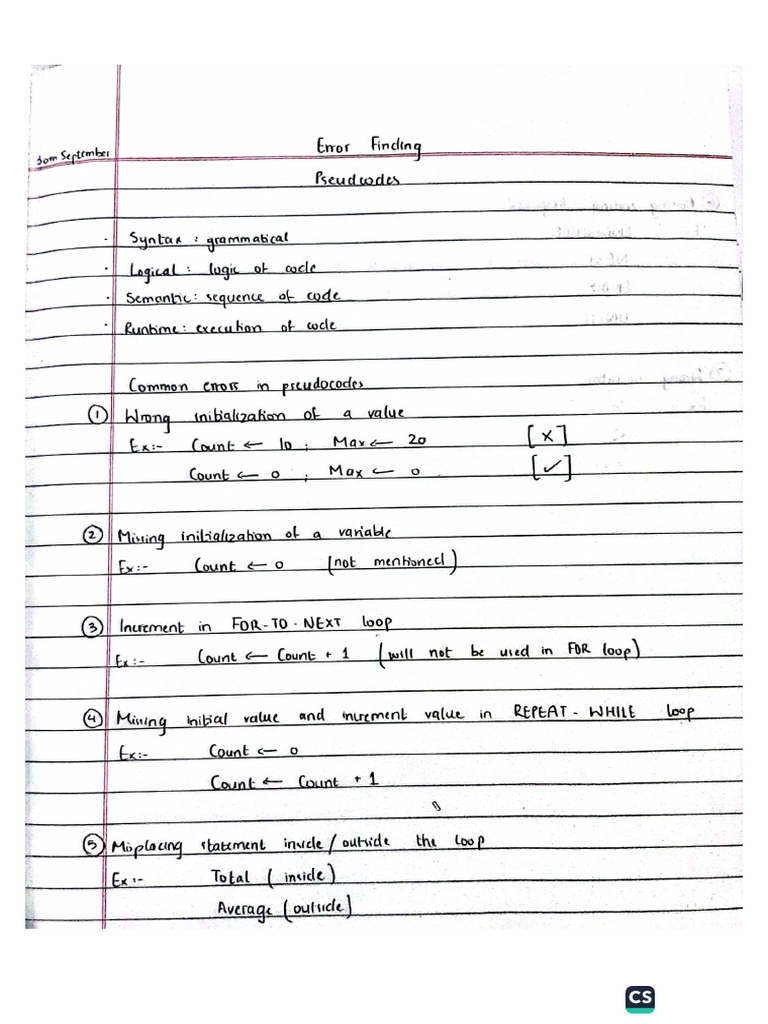 30th September
Error Finding
Pseudcodes
· Syntax : grammatical
· Logical : logic of code
· Semantic : sequence of code
· Runtime : execution of code
Common errors in pseudocodes
① Wrong initialization of a value
Ex:- Count ← 10 ; Max ← 20 [×]
Count ← 0 ; Max ← 0 [✓]
② Missing initialization of a variable
Ex:- Count ← 0 (not mentioned)
③ Increment in FOR-TO-NEXT loop
Ex:- Count ← Count + 1 (will not be used in FOR loop)
④ Missing initial value and increment value in REPEAT - WHILE loop
Ex:- Count ← 0
Count ← Count + 1
⑤ Misplacing statement inside/outside the loop
Ex:- Total (inside)
Average (outside)
CS